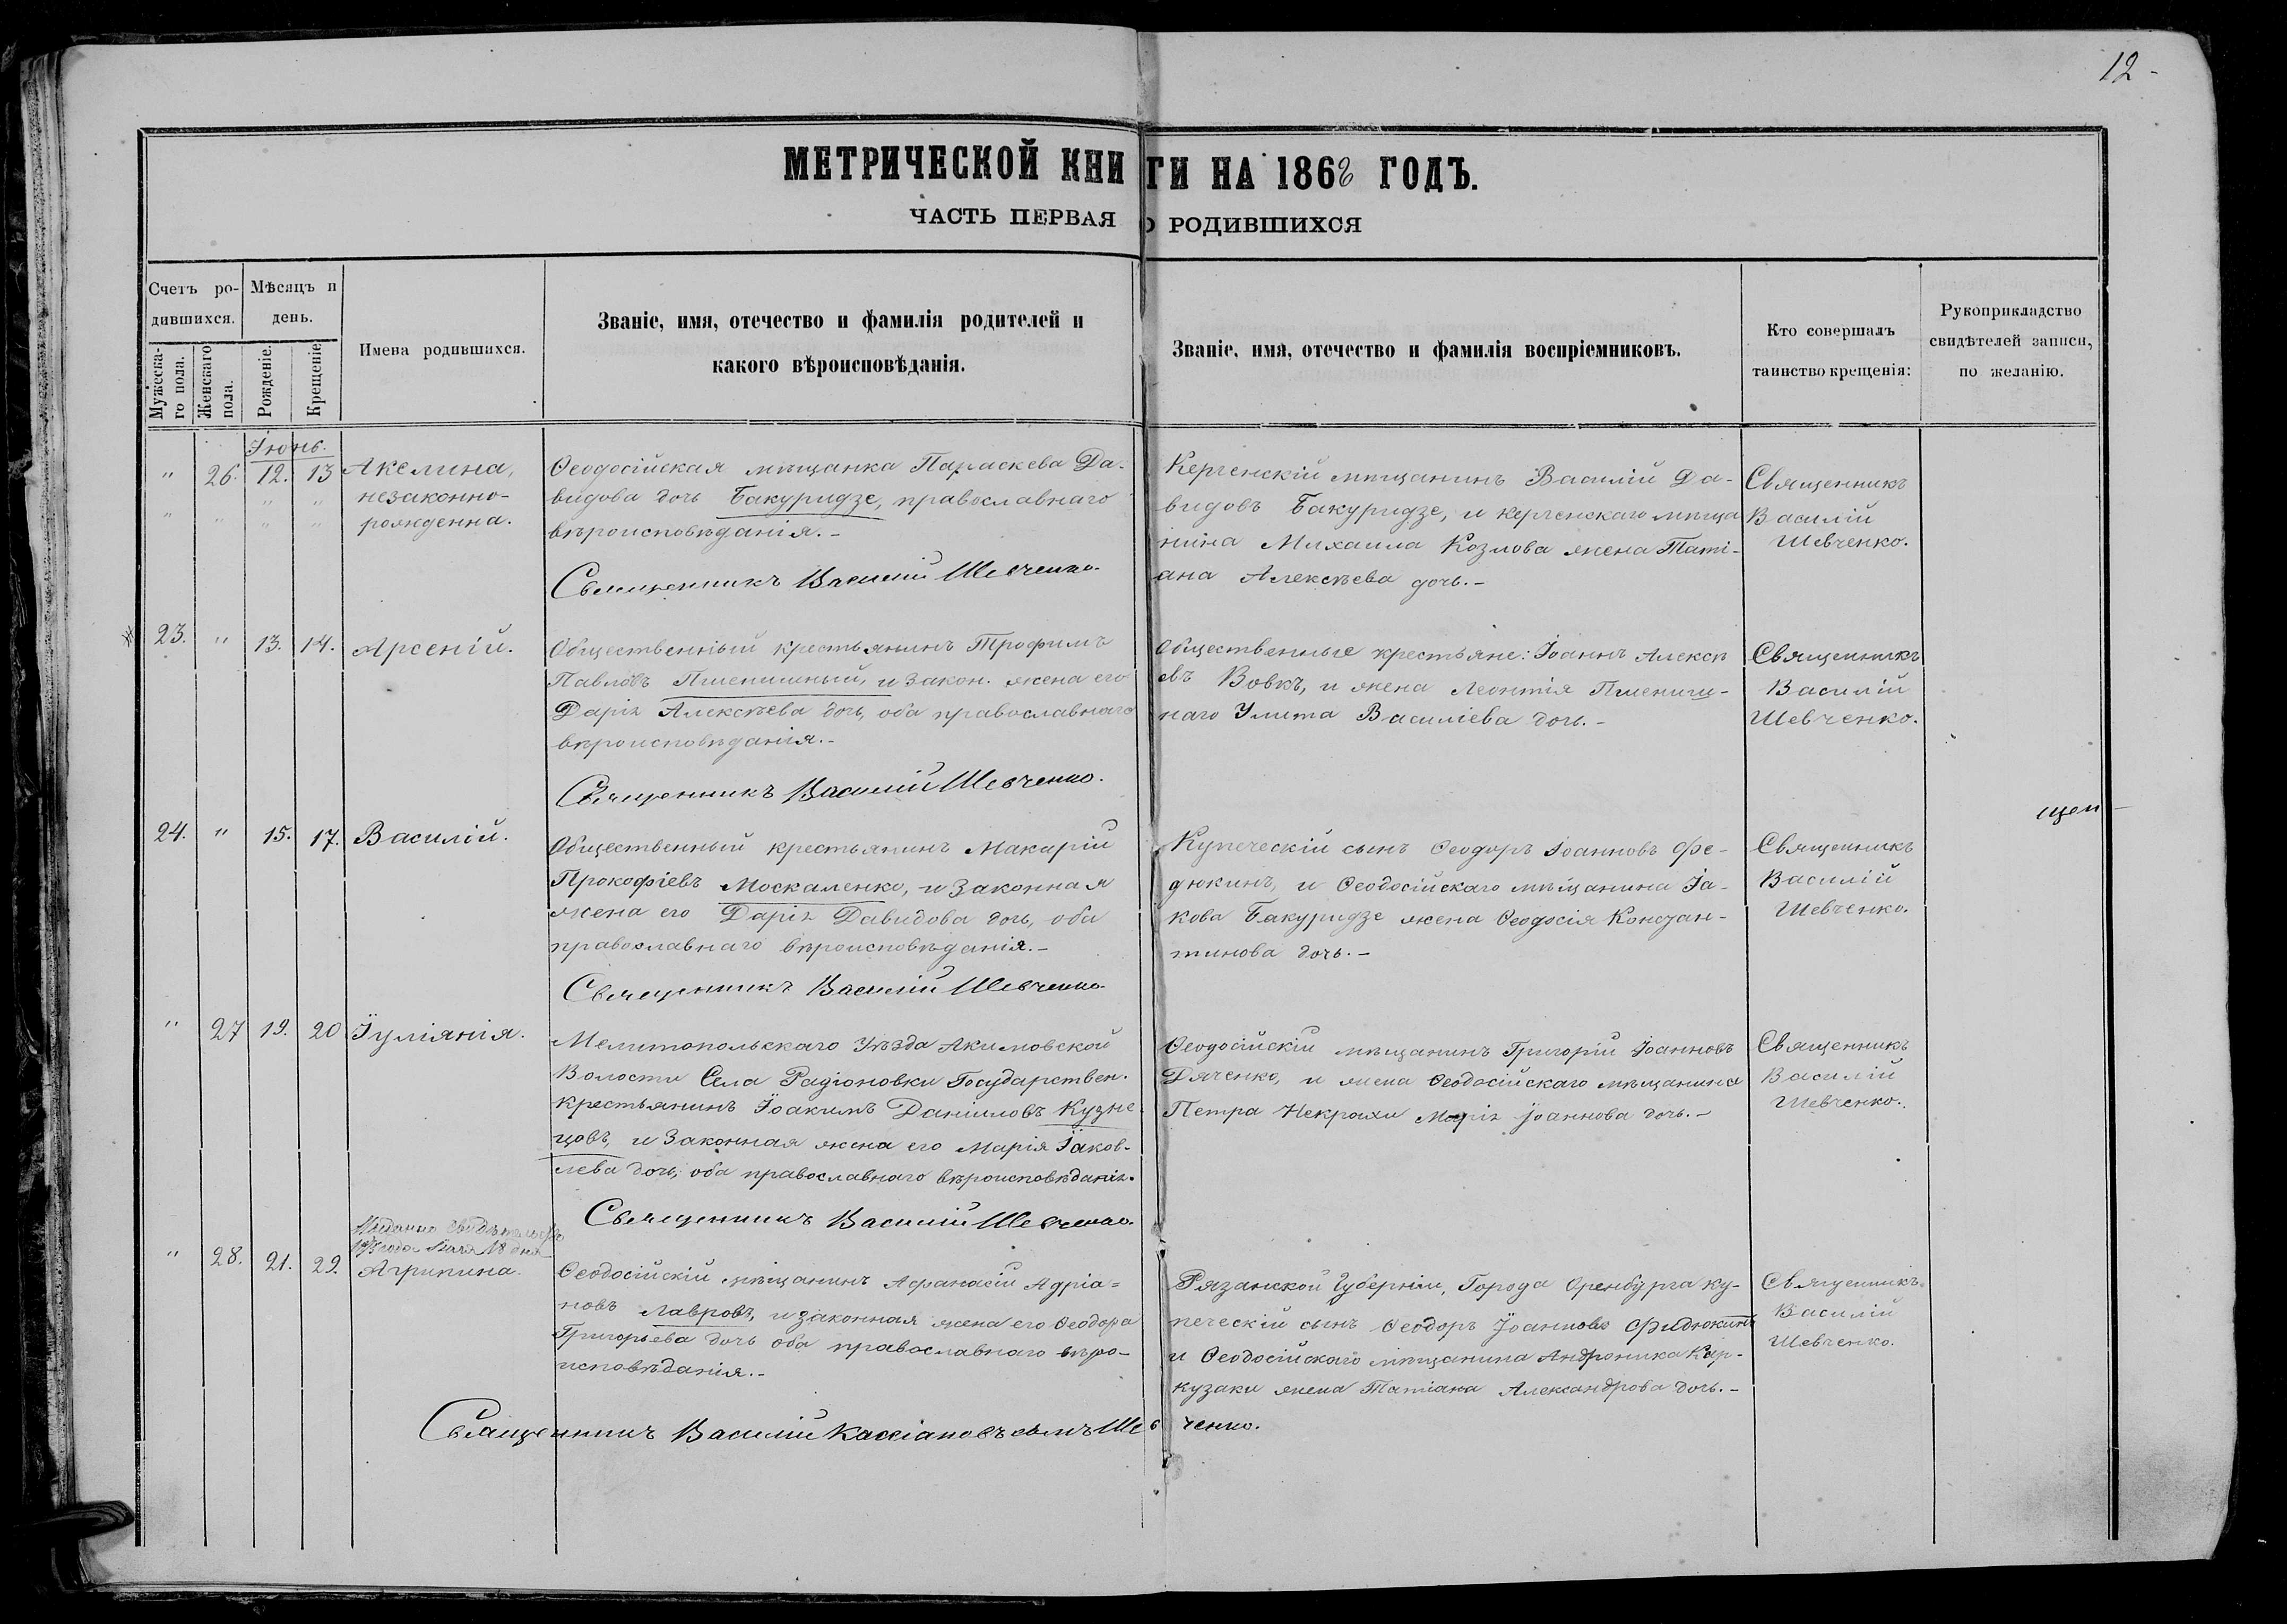 12-
МЕТРИЧЕСКОЙ КНИГИ НА 1868 ГОДЪ.
ЧАСТЬ ПЕРВАЯ О РОДИВШИХСЯ
Счетъ ро-
дившихся.
Мѣсяцъ и
день.
Мужеска-
го пола.
Женскаго
пола.
Рожденіе.
Крещеніе
Имена родившихся.
Званіе, имя, отечество и фамилія родителей и
какого вѣроисповѣданія.
Званіе, имя, отечество и фамилія воспріемниковъ.
Кто совершалъ
таинство крещенія:
Рукоприкладство
свидѣтелей записи,
по желанію.
Іюнь.
" 26. 12. 13 Акелина,
незаконно-
рожденна.
Ѳеодосійская мѣщанка Параскева Да-
видова дочь Бакуридзе, православнаго
вѣроисповѣданія.-
Священникъ Василій Шевченко.
Керченскій мѣщанинъ Василій Да-
видовъ Бакуридзе, и керченскаго мѣща
нина Михаила Козлова жена Таті-
ана Алексѣева дочь.-
Священникъ
Василій
Шевченко.
23. " 13. 14. Арсеній.
Общественный крестьянинъ Трофимъ
Павловъ Пшенишный, и закон. жена его
Дарія Алексѣева дочь, оба православнаго
вѣроисповѣданія.-
Священникъ Василій Шевченко.
Общественные крестьяне: Іоаннъ Алексѣ
евъ Вовкъ, и жена Леонтія Пшениш-
наго Улита Василіева дочь.-
Священникъ
Василій
Шевченко.
24. " 15. 17. Василій.
Общественный крестьянинъ Макарій
Прокофіевъ Москаленко, и законная
жена его Дарія Давидова дочь, оба
православнаго вѣроисповѣданія.-
Священникъ Василій Шевченко.
Купеческій сынъ Ѳеодоръ Іоанновъ Фе-
дюкинъ, и Ѳеодосійскаго мѣщанина Іа-
кова Бакуридзе жена Ѳеодосія Констан-
тинова дочь.-
Священникъ
Василій
Шевченко.
" 27 19. 20 Іуліанія.
Мелитопольскаго Уѣзда Акимовской
Волости Села Радіоновки Государствен.
крестьянинъ Іоакимъ Даніиловъ Кузне-
цовъ, и законная жена его Марія Іаков-
лева дочь, оба православнаго вѣроисповѣданія.
Священникъ Василій Шевченко.
Ѳеодосійскій мѣщанинъ Григорій Іоанновъ
Дяченко, и жена Ѳеодосійскаго мѣщанина
Петра Некрахи Марія Іоаннова дочь.-
Священникъ
Василій
Шевченко.
" 28. 21. 29. Агрипина.
Ѳеодосійскій мѣщанинъ Афанасій Адріа=
новъ Лавровъ, и законная жена его Ѳеодора
Григорьева дочь оба православнаго вѣро-
исповѣданія.-
Рязанской Губерніи, Города Оренбурга ку-
печескій сынъ Ѳеодоръ Іоанновъ Федюкинъ
и Ѳеодосійскаго мѣщанина Андроника Кар-
кузаки жена Татіана Александрова дочь.-
Священникъ
Василій
Шевченко.
Священникъ Василій Кассіановъ сынъ Шевченко.